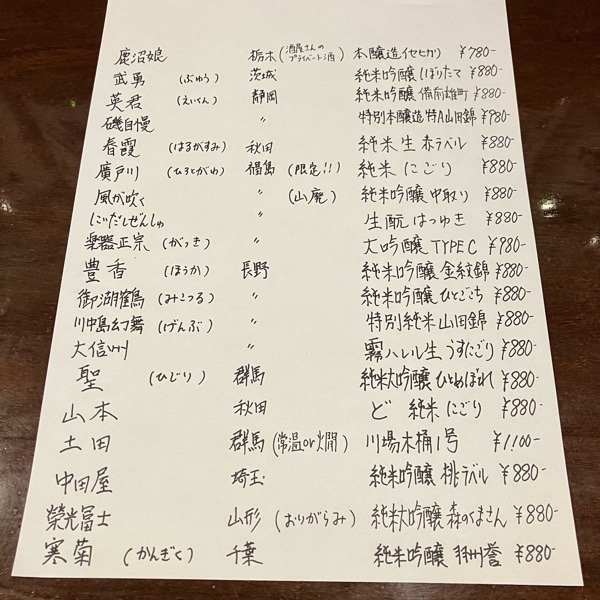 鹿沼娘 栃木(酒屋さんのプライベート酒) 本醸造イセヒカリ ¥780-
武勇 (ぶゆう) 茨城 純米吟醸 しぼりたて ¥880-
英君 (えいくん) 静岡 純米吟醸 備前雄町 ¥880-
磯自慢 〃 特別本醸造 特A山田錦 ¥980-
春霞 (はるがすみ) 秋田 純米 生 赤ラベル ¥880-
廣戸川 (ひろとがわ) 福島 (限定!!) 純米 にごり ¥880-
風が吹く 〃 (山廃) 純米吟醸 中取り ¥880-
にいだしぜんしゅ 〃 生酛 はつゆき ¥880-
楽器正宗 (がっき) 〃 大吟醸 TYPE C ¥980-
豊香 (ほうか) 長野 純米吟醸 金紋錦 ¥880-
御湖鶴 (みこつる) 〃 純米吟醸 ひとごこち ¥880-
川中島幻舞 (げんぶ) 〃 特別純米 山田錦 ¥880-
大信州 〃 霧ハレル 生 うすにごり ¥880-
聖 (ひじり) 群馬 純米大吟醸 ひとめぼれ ¥880-
山本 秋田 ど 純米 にごり ¥880-
土田 群馬 (常温or燗) 川場木桶1号 ¥1,100-
中田屋 埼玉 純米吟醸 桃ラベル ¥880-
榮光冨士 山形 (おりがらみ) 純米大吟醸 森のくまさん ¥880-
寒菊 (かんぎく) 千葉 純米吟醸 羽州誉 ¥880-